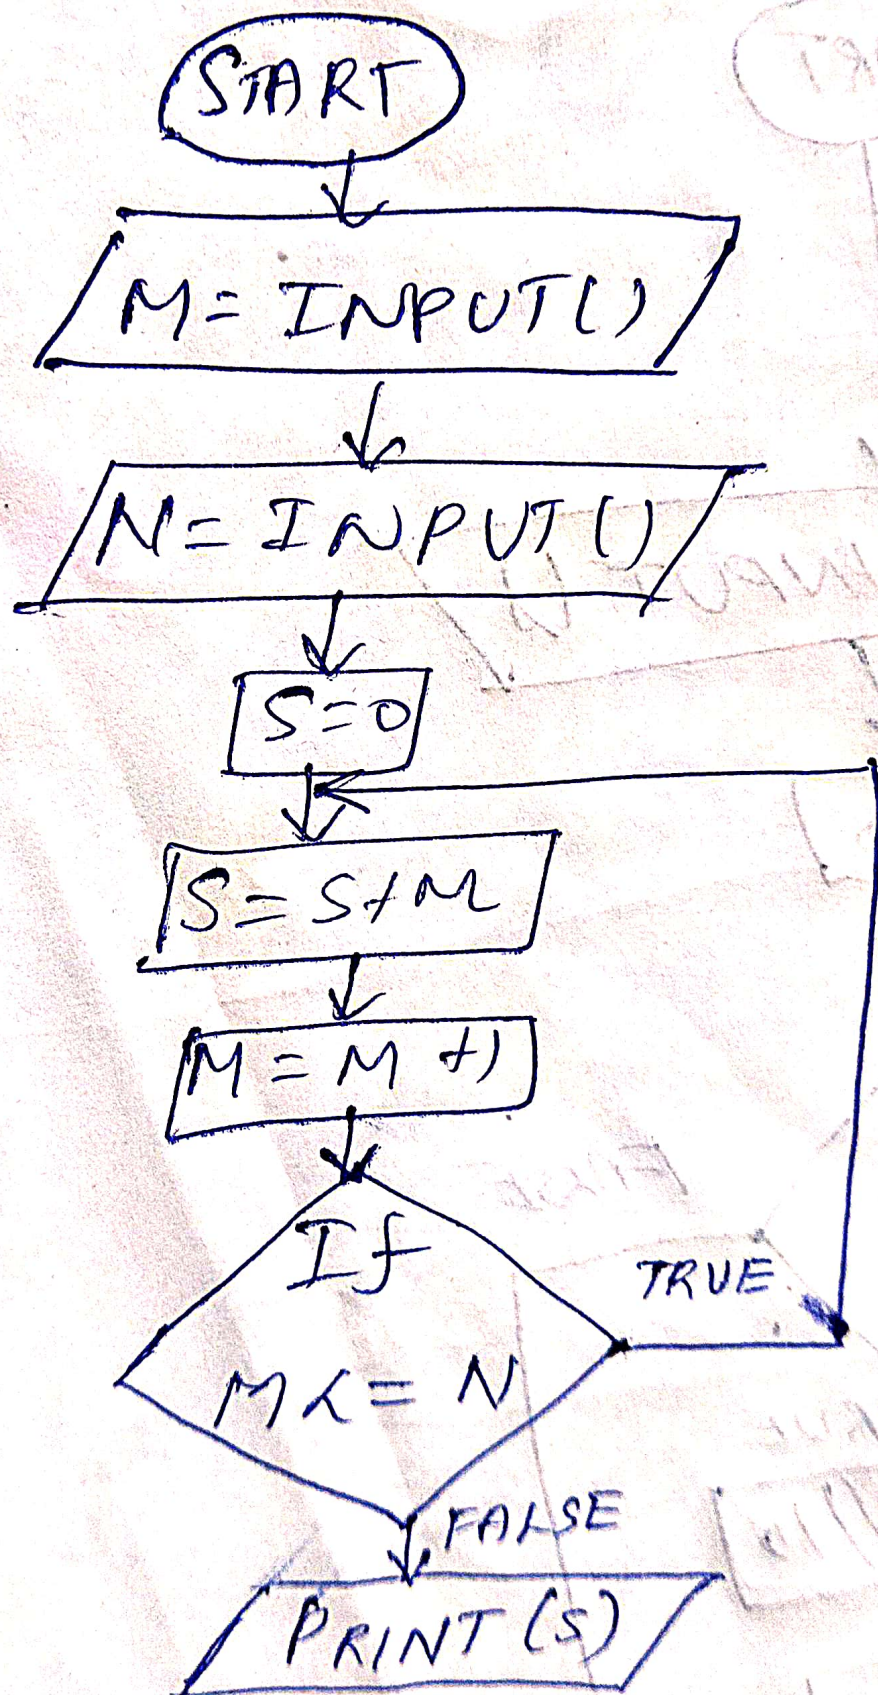 START
M = INPUT()
N = INPUT()
S = 0
S = S + M
M = M + 1
If
M <= N
TRUE
FALSE
PRINT (S)